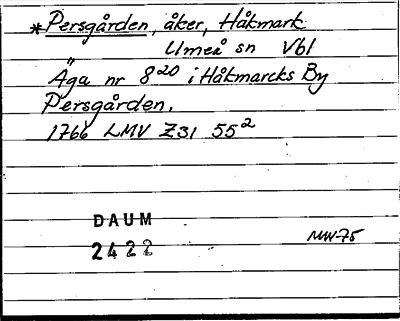 *Persgården, åker, Håkmark
Umeå sn Vbl
Äga nr 8²⁰ i Håkmarcks By
Persgården.
1766 LMV Z31 55²
DAUM
2422
MW-75